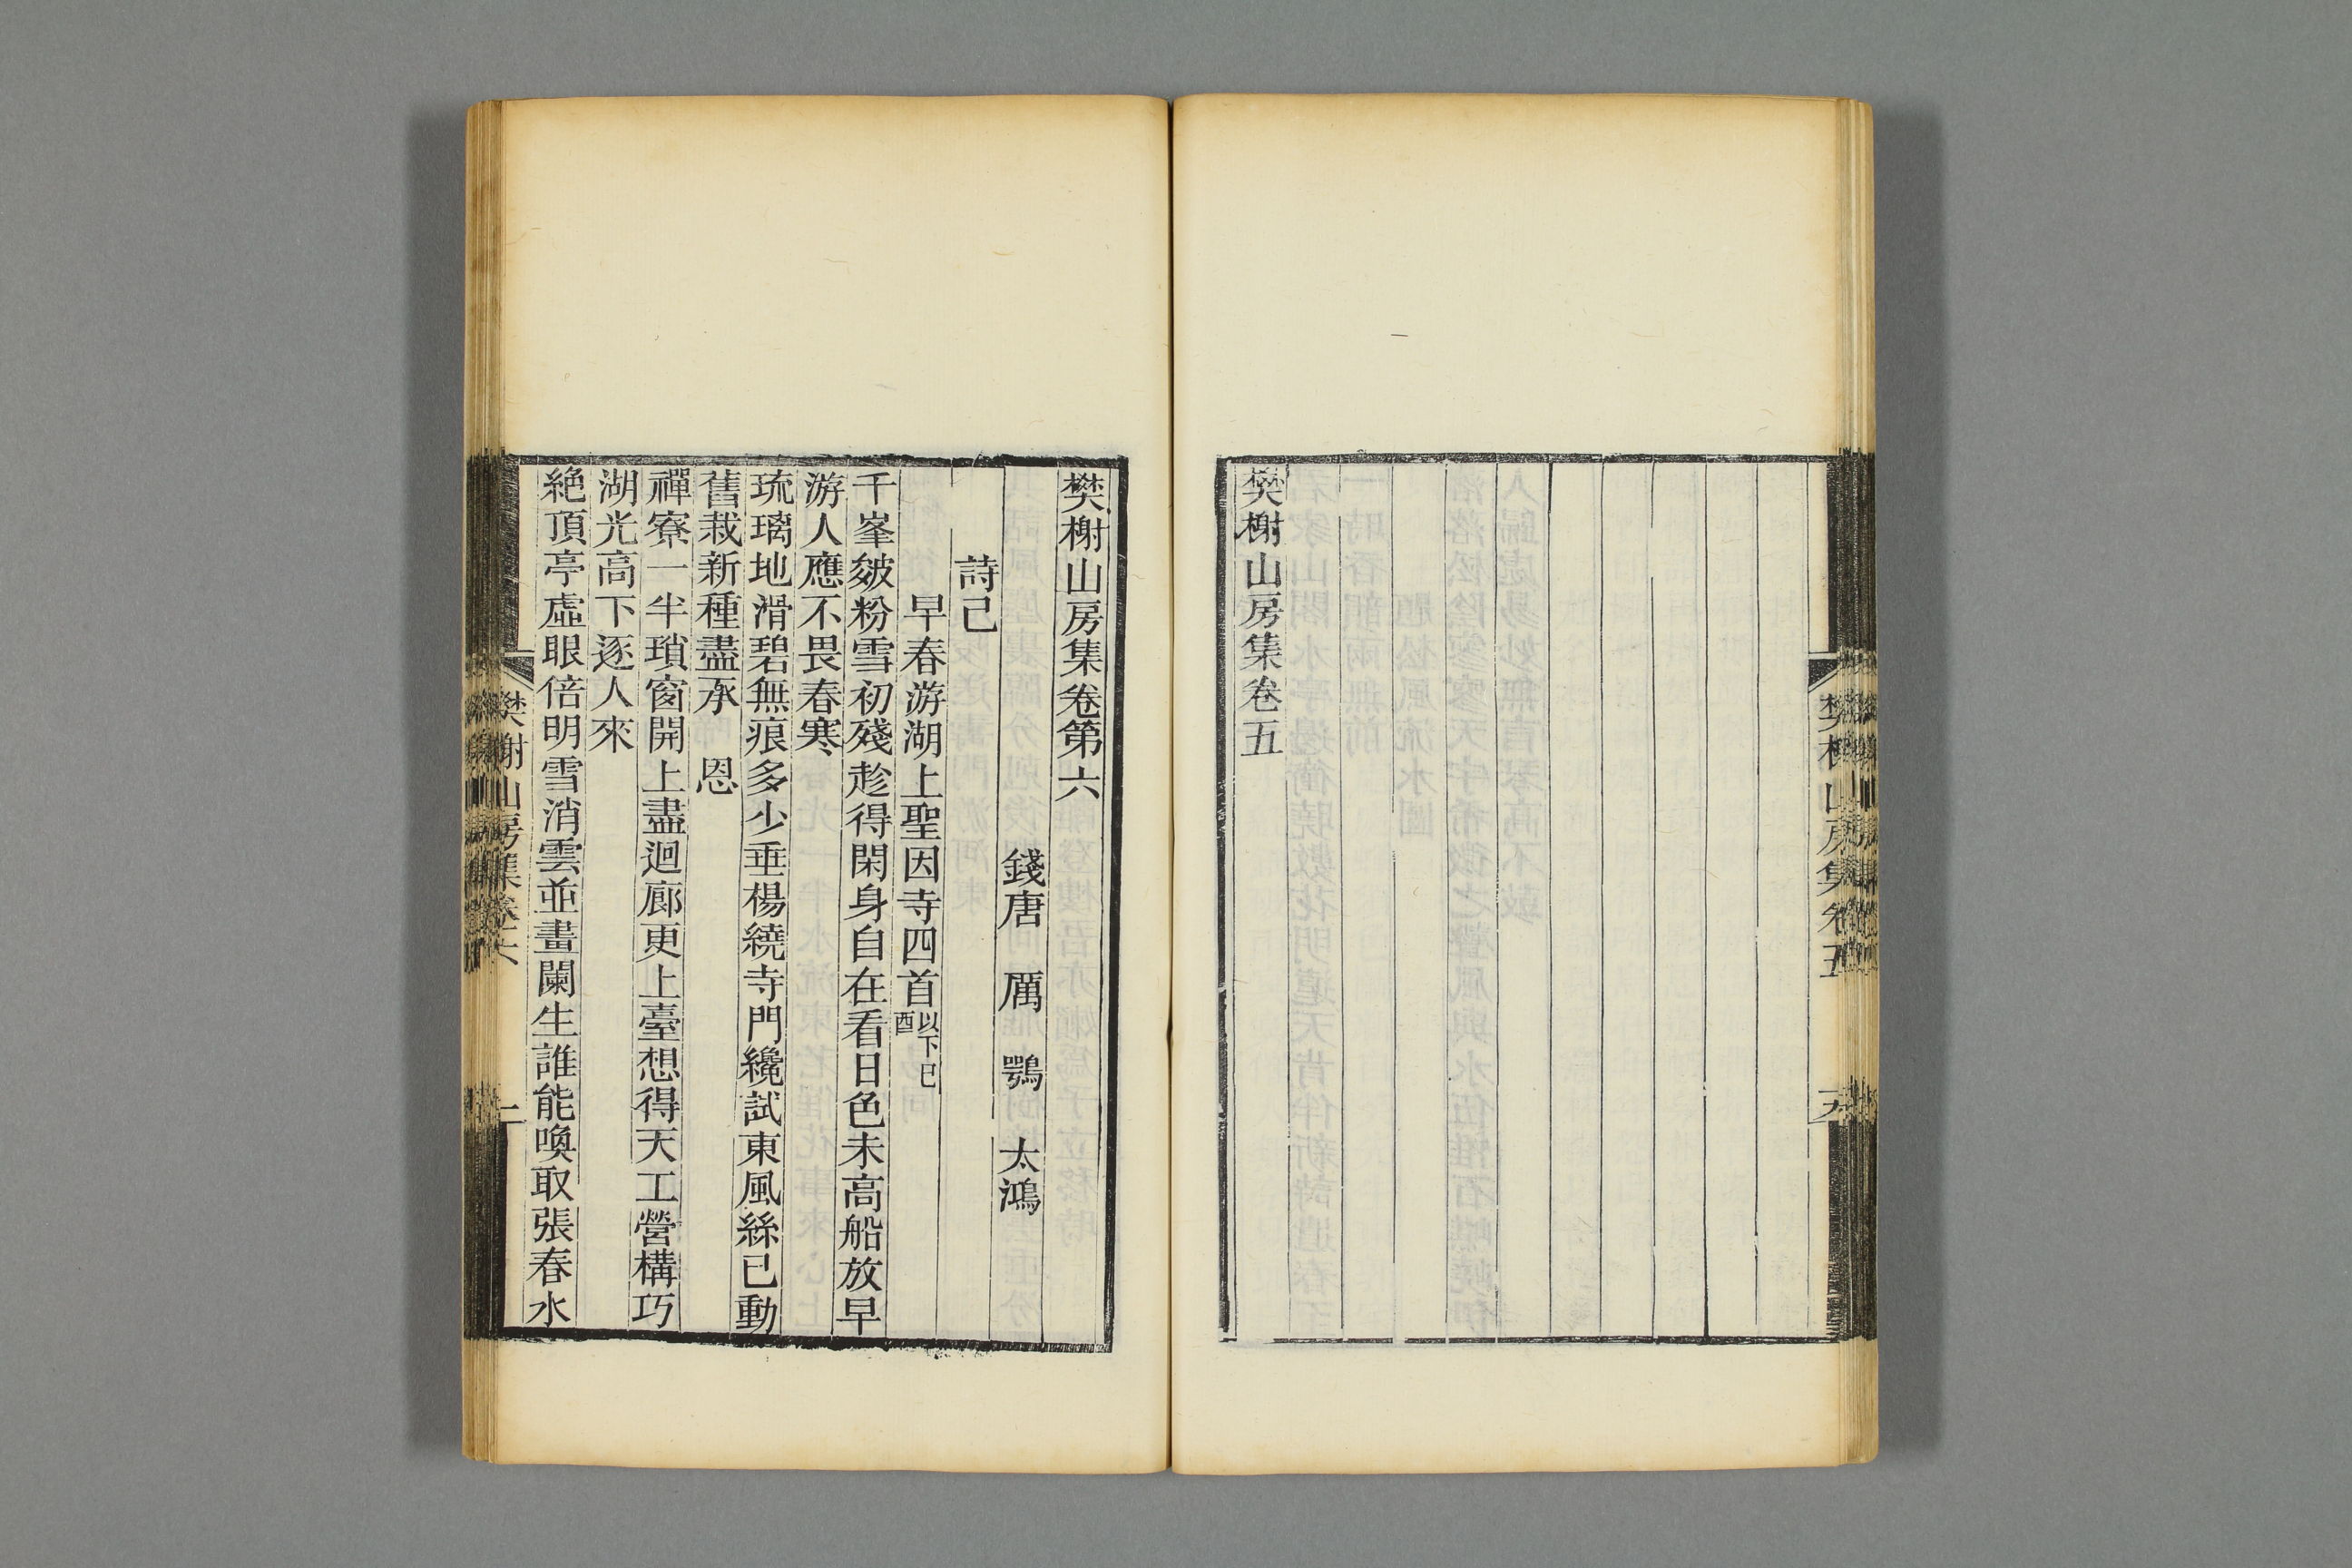 樊榭山房集卷五
樊榭山房集卷五
樊榭山房集卷第六
錢唐 厲 鶚 太鴻
詩己
早春游湖上聖因寺四首以下己酉
千峯皴粉雪初殘趁得閑身自在看日色未高船放早
游人應不畏春寒
琉璃地滑碧無痕多少垂楊繞寺門纔試東風絲已動
舊栽新種盡承 恩
禪寮一半瑣窗開上盡迴廊更上臺想得天工營構巧
湖光高下逐人來
絶頂亭虛眼倍明雪消雲並畫闌生誰能喚取張春水
樊榭山房集卷六
一